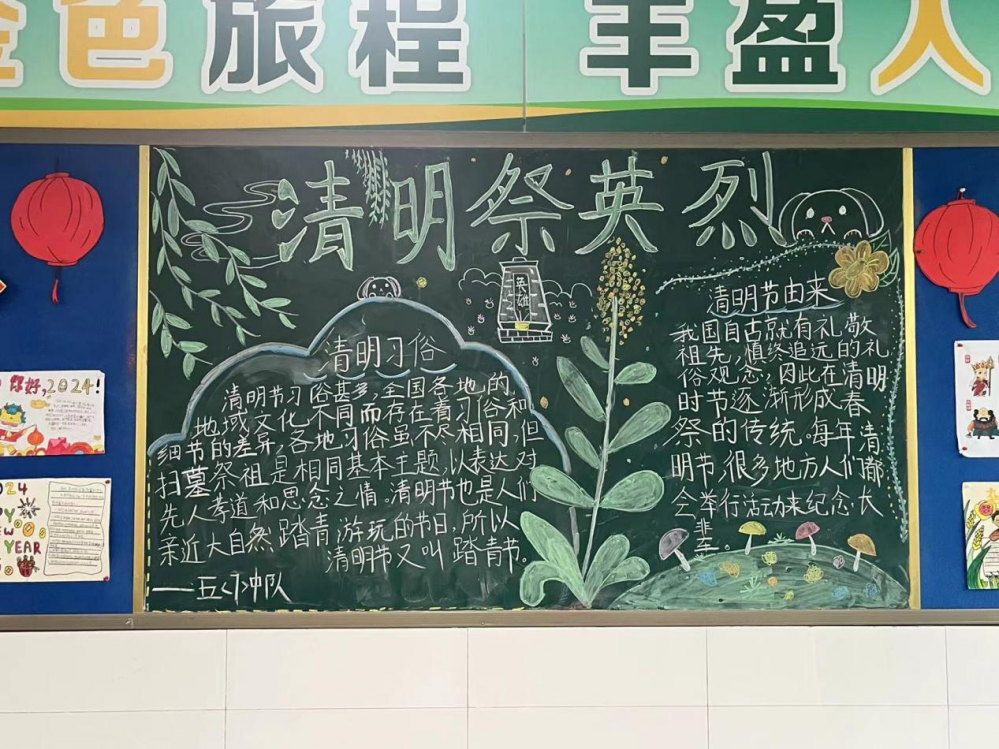 金色旅程 丰盈人
清明祭英烈
英雄
清明习俗
清明节习俗甚多,全国各地的
地域文化不同而存在着习俗和
细节的差异,各地习俗虽不尽相同,但
扫墓祭祖是相同基本主题,以表达对
先人孝道和思念之情。清明节也是人们
亲近大自然踏青游玩的节日,所以
清明节又叫踏青节。
——五(1)中队
清明节由来
我国自古就有礼敬
祖先,慎终追远的礼
俗观念,因此在清明
时节逐渐形成春
祭的传统。每年清
明节,很多地方人们都
会举行活动来纪念长
辈
你好,2024!
YEAR